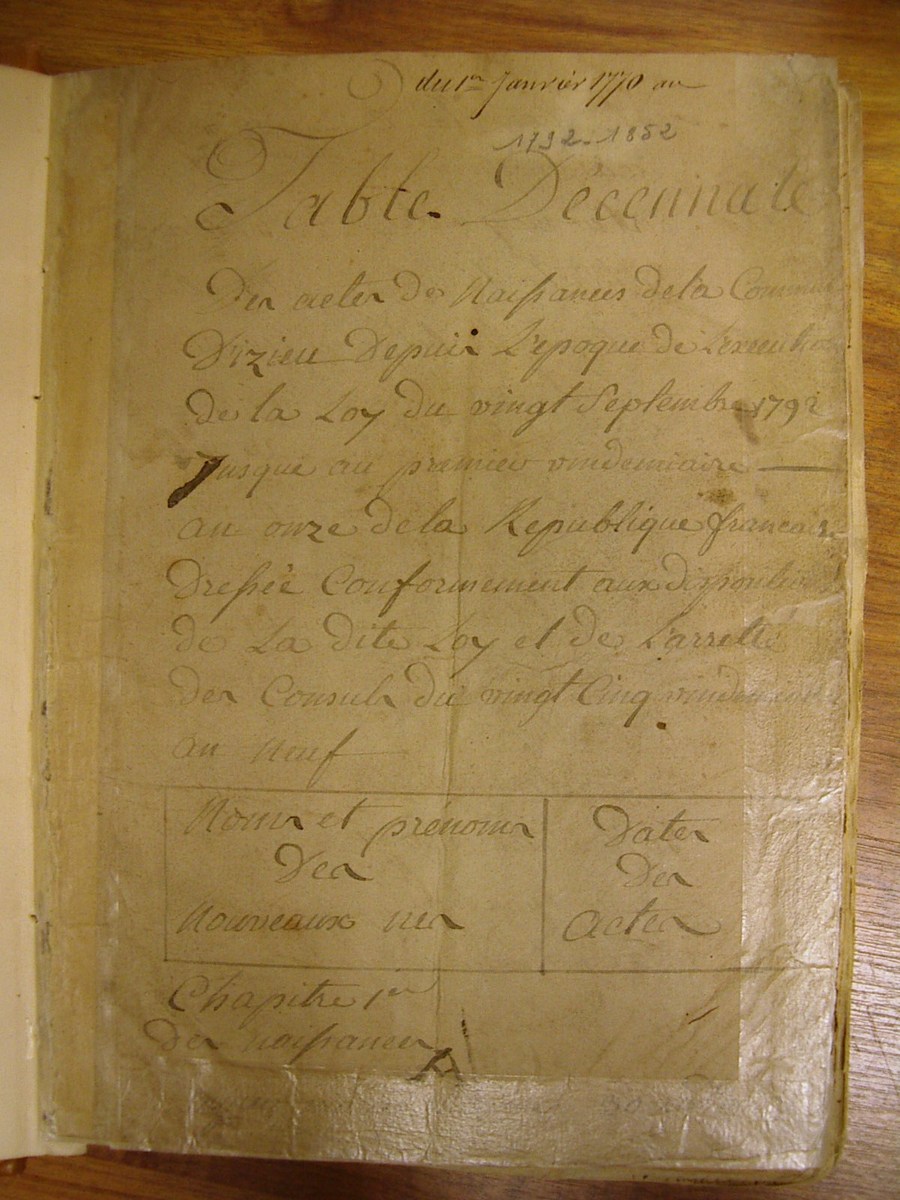 du 1er Janvier 1770 au
1792-1852
Table Décennale
Des actes des Naissances de la Commune
D'izieu Depuis L'epoque de L'execution
de la Loy du vingt Septembre 1792
Jusque au premier vindemiaire
an onze de la Republique francaise
Dressée Conformement aux dispositions
de La dite Loy et de L'arretté
des Consuls du vingt Cinq vindemiaire
an neuf
Noms et prénoms
Des
Nouveaux nes
Dates
Des
Actes
Chapitre 1er
Des naissances
A